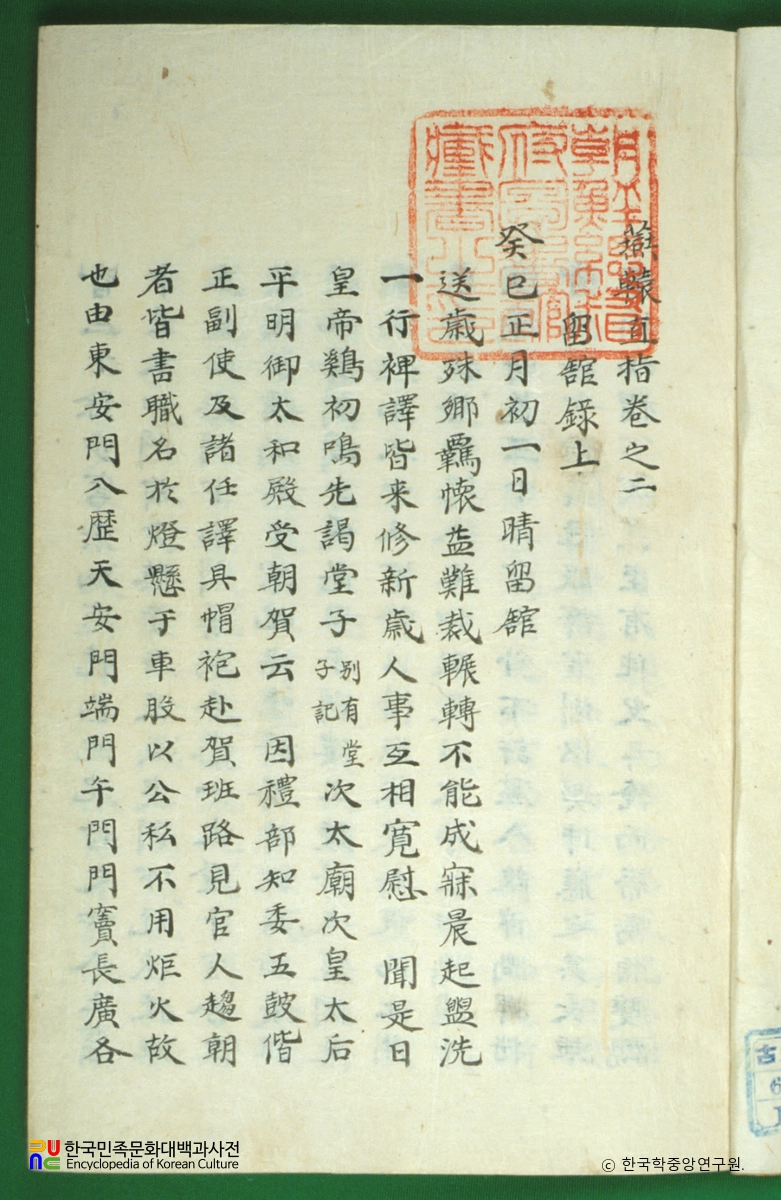 燕轅直指卷之二
留館錄上
癸巳正月初一日晴留館
送歲殊鄉羈懷益難裁輾轉不能成寐晨起盥洗
一行裨譯皆来修新歲人事互相寬慰 聞是日
皇帝鷄初鳴先謁堂子別有堂子記次太廟次皇太后
平明御太和殿受朝賀云 因禮部知委五鼓偕
正副使及諸任譯具帽袍赴賀班路見官人趨朝
者皆書職名於燈懸于車股以公私不用炬火故
也由東安門入歷天安門端門午門門竇長廣各
古
6
한국민족문화대백과사전
Encyclopedia of Korean Culture
© 한국학중앙연구원.